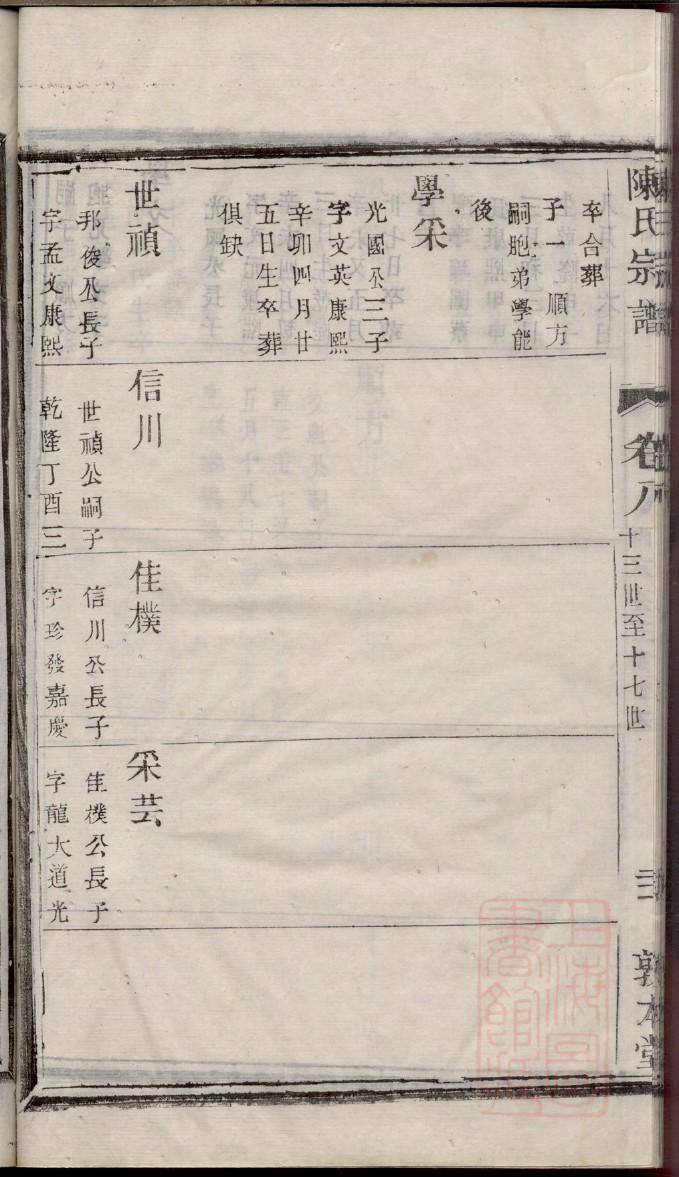 陳氏宗譜
卷八
十三世至十七世
三
敦本堂
卒合葬
子一順方
嗣胞弟學能
後
學采
光國公三子
字文英康熙
辛卯四月廿
五日生卒葬
俱缺
世禎
邦俊公長子
字孟文康熙
信川
世禎公嗣子
乾隆丁酉三
佳樸
信川公長子
字珍發嘉慶
采芸
佳樸公長子
字龍大道光
上海圖書館藏